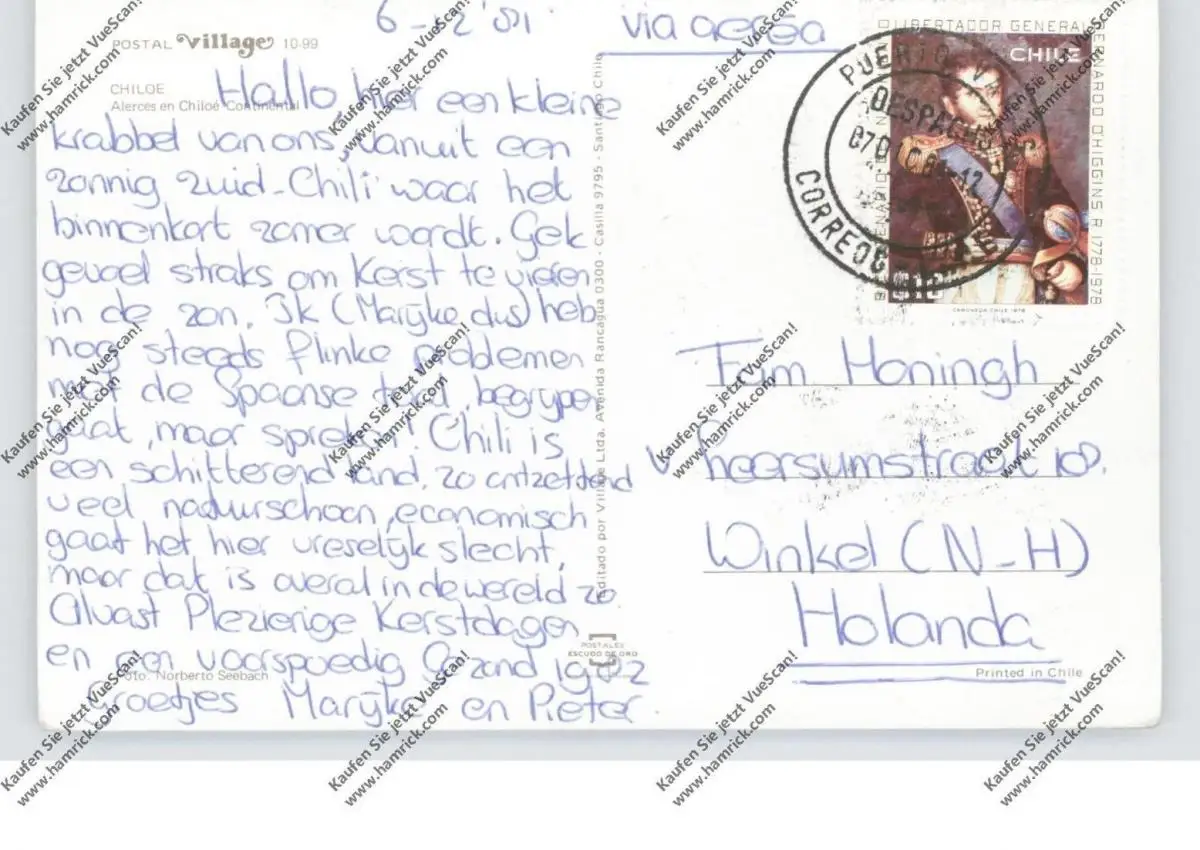 6-12'81. via aerea
POSTAL Village 10-99
CHILOE
Alerces en Chiloé Continental
Hallo hier een kleine
krabbel van ons, vanuit een
zonnig zuid-Chili waar het
binnenkort zomer wordt. Gek
gevoel straks om Kerst te vieren
in de zon. Ik (Marijke dus) heb
nog steeds flinke problemen
met de Spaanse taal, begrijpen
gaat, maar spreken! Chili is
een schitterend land, zo ontzettend
veel natuurschoon, economisch
gaat het hier vreselijk slecht,
maar dat is overal in de wereld zo.
Alvast Plezierige Kerstdagen
en een voorspoedig Gezond 1982
Foto: Norberto Seebach
Groetjes Marijke en Pieter.
Editado por Village Ltda. Avenida Rancagua 0300 - Casilla 9795 - Santiago Chile
POSTALES
ESCUDO DE ORO
LIBERTADOR GENERAL BERNARDO O'HIGGINS R. 1778-1978
CHILE
CASA MONEDA CHILE 1978
PUERTO
DESPACHO
CORREOS
Fam Honingh
v heersumstraat 10.
Winkel (N-H)
Holanda
Printed in Chile
Kaufen Sie jetzt VueScan!
www.hamrick.com